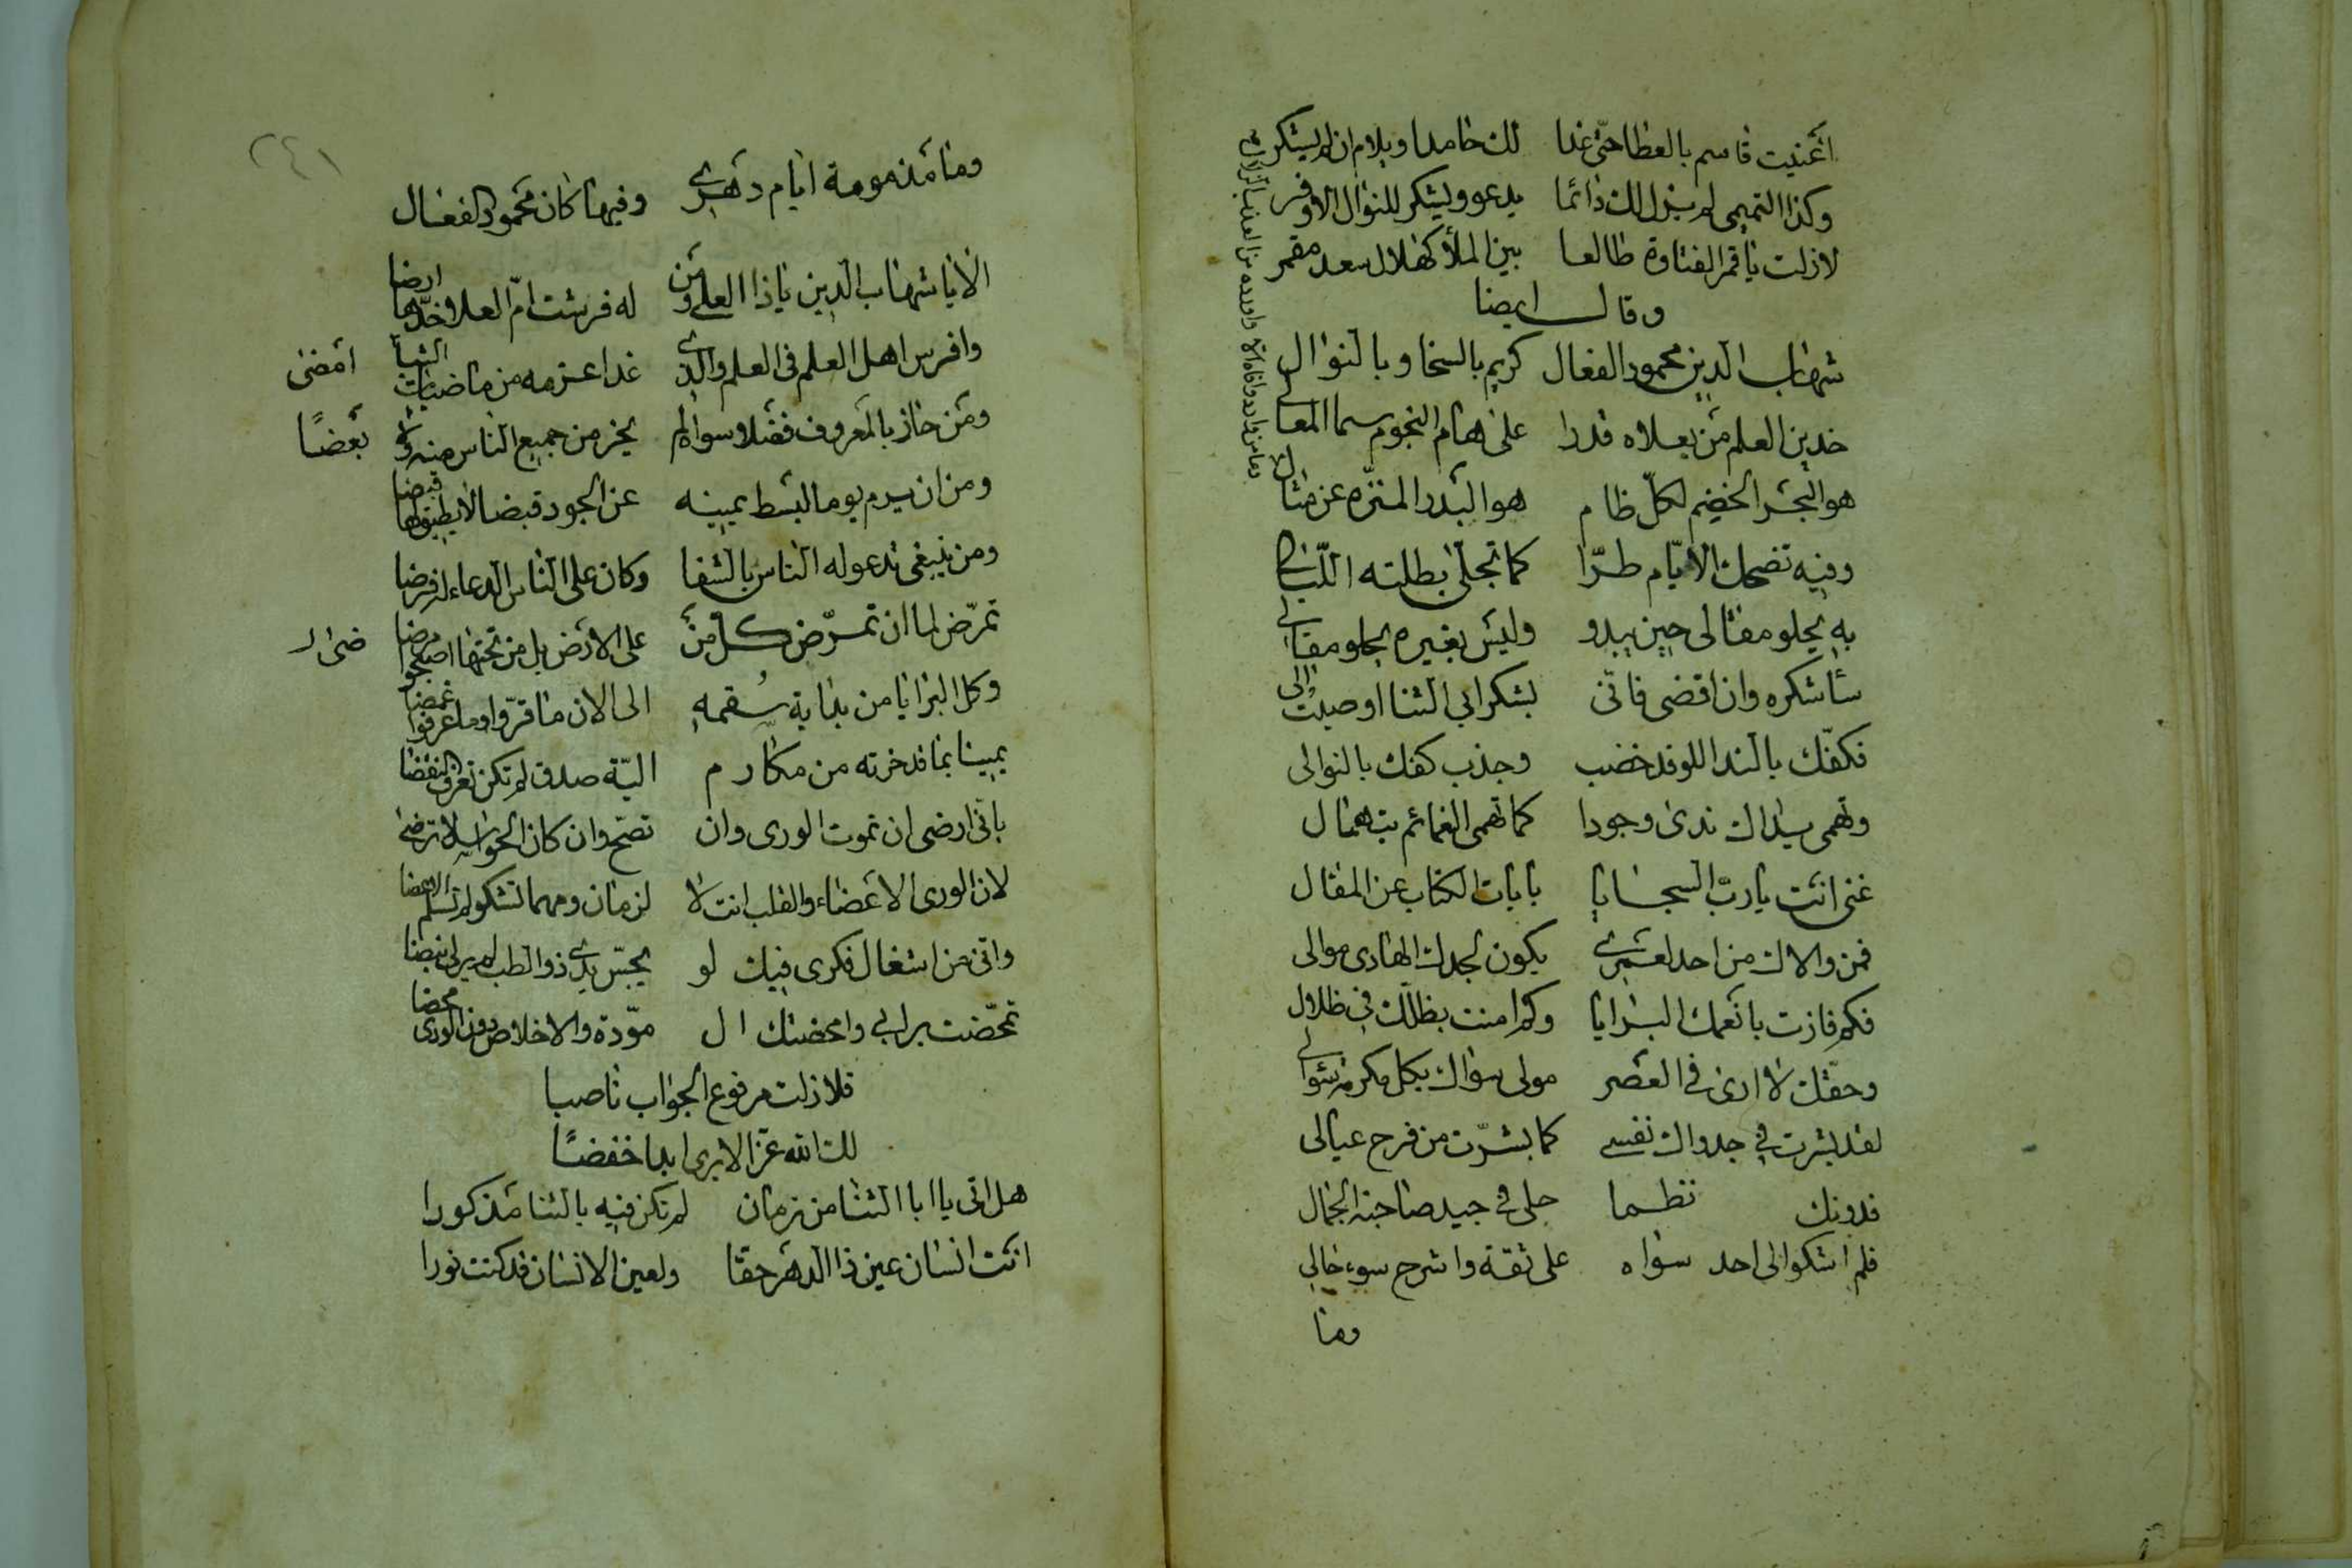 اغنيت قاسم بالعطا حتى غدا لك حامدا ويلام ان لم يشكر
وكذا التميمي لم يزل لك دائما يدعو ويشكر للنوال الاوفر
لازلت ياقمر الفتاوة طالعا بين الملأ كهلال سعد مقمر
وقال ايضا
شهاب الدين محمود الفعال كريم بالسخا وبالنوال
خدين العلم من يعلاه قدرا على هام النجوم سما المعالي
هو البحر الخضيم لكل ظام هو البدر المنزه عن مثال
وفيه تضحك الايام طرّا كما تجلى بطلته الليالي
به يحلو مقالي حين يبدو وليس بغيره يحلو مقالي
سأشكره وان اقضى فاني بشكر ابي الثنا اوصيت الى
فكفّك بالندا للوفد خضب وجذب كفك بالنوالى
وتهمى يداك ندى وجودا كما تهمى الغمائم بتهمال
غنى انت يارب السجايا بايات الكتاب عن المقال
فمن والاك من احد لعمري يكون لجدك الهادى موالى
فكم فازت بانعمك البرايا وكم امنت بظلك فى ظلال
وحقك لا ارى فى العصر مولى سواك بكل مكرمة
لقد بشرت في جدواك نفسي كما بشرت من فرح عيالى
فدونك نظما حلى في جيد صاحبة الجمال
فلم اشكو الى احد سواه على ثقة واشرح سوء حالي
وما
وما مذمومة ايام دهري وفيها كان محمود الفعال
الا يا شهاب الدين ياذا العلى ومن له فرشت ام العلا خدها ارضا
وافرس اهل العلم فى العلم والذي غدا عزمه من ماضيات الشبا امضى
ومن حاز بالمعروف فضلا سواه لم يحز من جميع الناس منه ولا بعضًا
ومن ان يرم يوما لبسط يمينه عن الجود قبضا لا يطيق لها قبضا
ومن ينبغى تدعو له الناس بالشفا وكان على الناس الدعاء له فرضا
تمرّض لما ان تمرّض كل من على الارض بل من تحتها اصبحوا مرضى
وكل البرايا من بداية سقمه الى الان ما قرّوا وما عرفوا غمضا
يمينا بما قد حزته من مكارم اليّة صدق لم تكن تعرف النقضا
باني ارضى ان تموت الورى وان تصح وان كان الحواسد لا ترضى
لان الورى الاعضاء والقلب انت لا لزمان ومهما تشكو لم تسلم الاعضا
وانى من اشغال فكرى فيك لو يجسّ يدي ذو الطب لم ير لي نبضا
تمحّضت براني وامحضتك ال مودة والاخلاص دون الورى محضا
فلازلت مرفوع الجواب ناصبا
لك الله عزا لا يرى ابدا خفضًا
هل اتى يا ابا الثنا من زمان لم تكن فيه بالثنا مذكورا
انت انسان عين ذا الدهر حقا ولعين الانسان قد كنت نورا